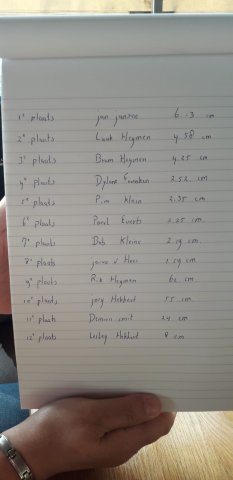 1e plaats jan janzee 6.3 cm
2e plaats Luuk Heymen 4.58 cm
3e plaats Bram Heymen 4.25 cm
4e plaats Dylano 2.52 cm
5e plaats Pim Klein 2.35 cm
6e plaats Everts 2.25 cm
7e plaats Bob Kleine 2.19 cm
8e plaats v Hees 1.59 cm
9e plaats Rik Heymen 62 cm
10e plaats joey Hebbert 55 cm
11e plaats Damian smit 24 cm
12e plaats Lesley Hebbert 8 cm